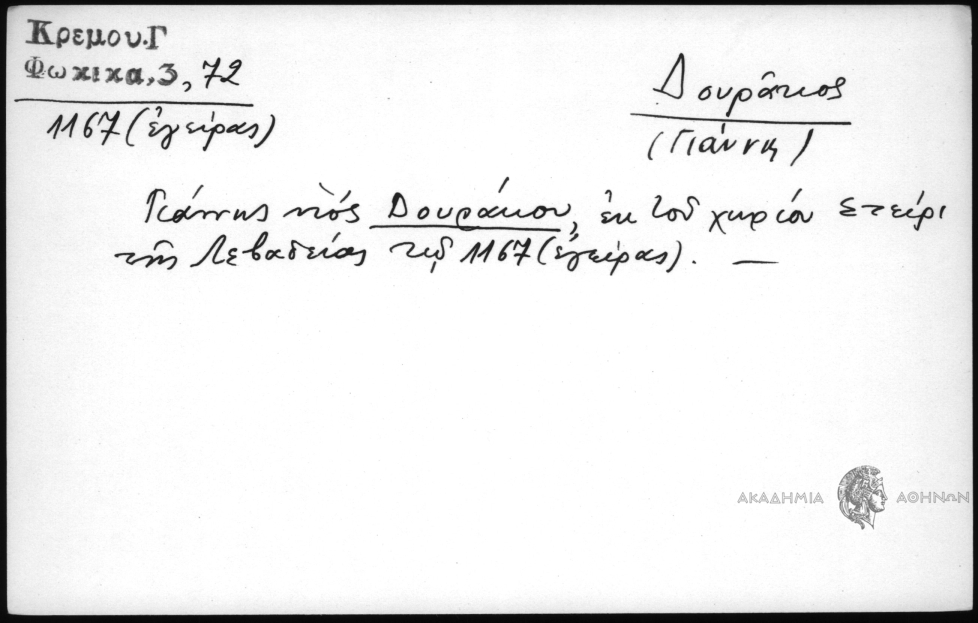 Κρεμου.Γ
Φωκικα,3,72
1167 (ἐγείρας)
Δουράκος
(Γιάννη)
Γιάννης υἱός Δουράκου, ἐκ τοῦ χωρίου Στείρι
τῆς Λεβαδείας τῷ 1167 (ἐγείρας). —
ΑΚΑΔΗΜΙΑ ΑΘΗΝΩΝ